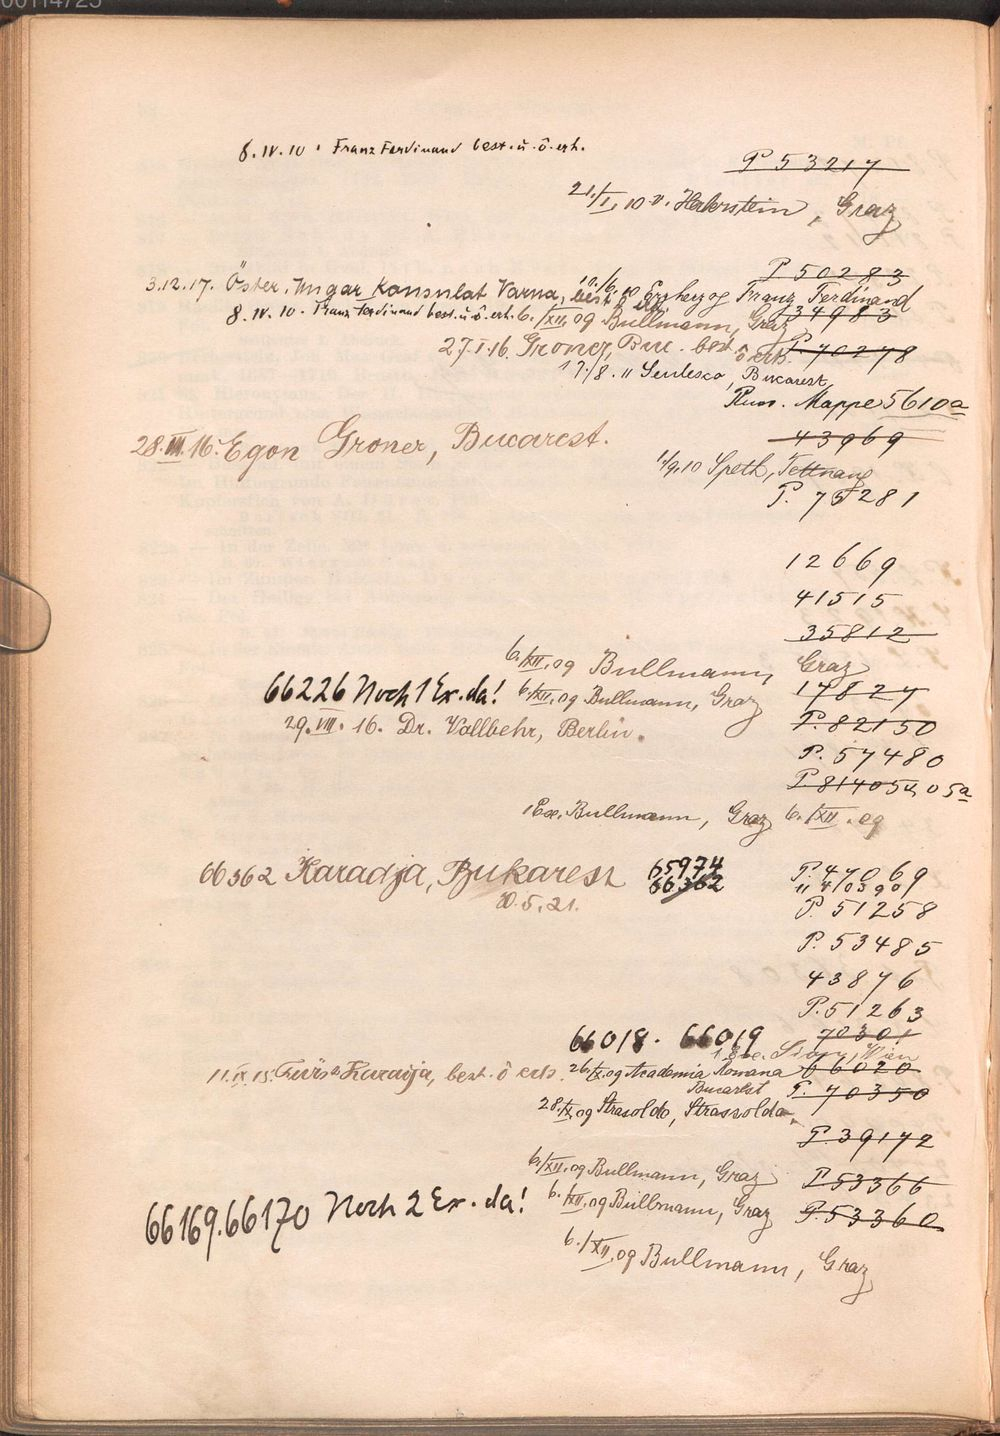 00114725
8. IV. 10. Franz Ferdinand best. u. ö. erh.
P 53217
21./I. 10 v. Halerstein, Graz
P 50283
3.12.17. Öster. Ungar Konsulat Varna, best
10./6. 10 Erzherzog Franz Ferdinand
34983
8. IV. 10. Franz Ferdinand best. u. ö. erh. 6./XII. 09 Bullmann, Graz
27.I.16. Groner, Buc. best. ö erh. P. 70278
17./8. 11 Sendesco, Bucarest
Rum. Mappe 5610a
43969
28.III.16. Egon Groner, Bucarest.
1/9.10 Speth, Tettnang
P. 75281
12669
41515
35812
6./XII. 09 Bullmann, Graz
66226 Noch 1 Ex. da! 6./XII. 09 Bullmann, Graz 17827
29. VIII. 16. Dr. Vollbehr, Berlin. P. 82150
P. 57480
P 81405 05a
1 Ex. Bullmann, Graz 6./XII. 09
66362 Karadja, Bukarest 65974 P. 47069
66362 " 4103901
20.5.21. P. 51258
P. 53485
43876
P. 51263
66018. 66019 70301
1 Exe. Wien
11.IX.15. Fürst Karadja, best. ö erh. 26./X. 09 Academia Romana 66020
Bucarest P. 70350
28./X. 09 Strasoldo, Strassoldo
P. 39172
6./XII. 09 Bullmann, Graz P 53366
66169. 66170 Noch 2 Ex. da! 6./XII. 09 Bullmann, Graz P. 53360
6./XII. 09 Bullmann, Graz